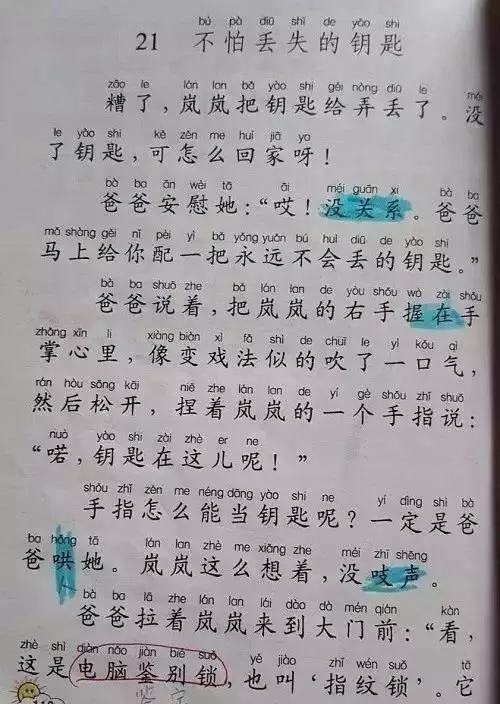 bú pà diū shī de yào shi
21 不怕丢失的钥匙
zāo le lán lan bǎ yào shi gěi nòng diū le méi
糟了，岚岚把钥匙给弄丢了。没
le yào shi kě zěn me huí jiā ya
了钥匙，可怎么回家呀！
bà ba ān wèi tā āi méi guān xi bà ba
爸爸安慰她：“哎！没关系。爸爸
mǎ shàng gěi nǐ pèi yì bǎ yǒng yuǎn bú huì diū de yào shi
马上给你配一把永远不会丢的钥匙。”
bà ba shuō zhe bǎ lán lan de yòu shǒu wò zài shǒu
爸爸说着，把岚岚的右手握在手
zhǎng xīn li xiàng biàn xì fǎ shì de chuī le yì kǒu qì
掌心里，像变戏法似的吹了一口气，
rán hòu sōng kāi niē zhe lán lan de yí gè shǒu zhǐ shuō
然后松开，捏着岚岚的一个手指说：
nuò yào shi zài zhè er ne
“喏，钥匙在这儿呢！”
shǒu zhǐ zěn me néng dāng yào shi ne yí dìng shì bà
手指怎么能当钥匙呢？一定是爸
ba hǒng tā lán lan zhè me xiǎng zhe méi zhī shēng
爸哄她。岚岚这么想着，没吱声。
bà ba lā zhe lán lan lái dào dà mén qián kàn
爸爸拉着岚岚来到大门前：“看，
zhè shì diàn nǎo jiàn bié suǒ yě jiào zhǐ wén suǒ tā
这是电脑鉴别锁，也叫‘指纹锁’。它
鉴定